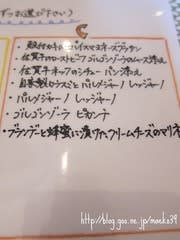 ずつお選び下さい)
C
・殻付カキ
・佐賀牛ローストビーフ ゴルゴンゾーラのムース添え
・佐賀牛ネックのシチュー パン添え
・自家製セラスミと パルメジャーノ レッジャーノ
・パルメジャーノ レッジャーノ
・ゴルゴンゾーラ ピカンテ
・ブランデーと蜂蜜に漬けたクリームチーズのマリネ
http://blog.goo.ne.jp/maeko39